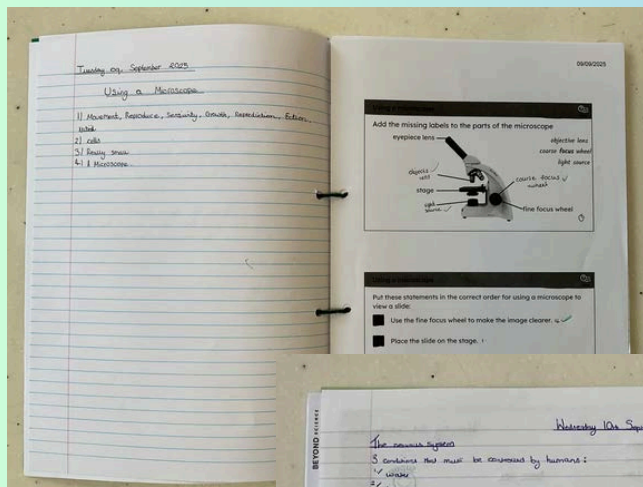 Tuesday 09. September 2025
Using a Microscope
1) Movement, Reproduce, Growth,
2) cells
3) Really small
4) A Microscope
09/09/2025
Using a microscope
Add the missing labels to the parts of the microscope
eyepiece lens
objective lens
coarse focus wheel
light source
lens
coarse focus
wheel
stage
light
source
fine focus wheel
Using a microscope
Put these statements in the correct order for using a microscope to
view a slide:
Use the fine focus wheel to make the image clearer. 4
Place the slide on the stage. 1
BEYOND SCIENCE
Wednesday 10th Sep
The nervous system
3 conditions that must be controlled by humans:
1 water